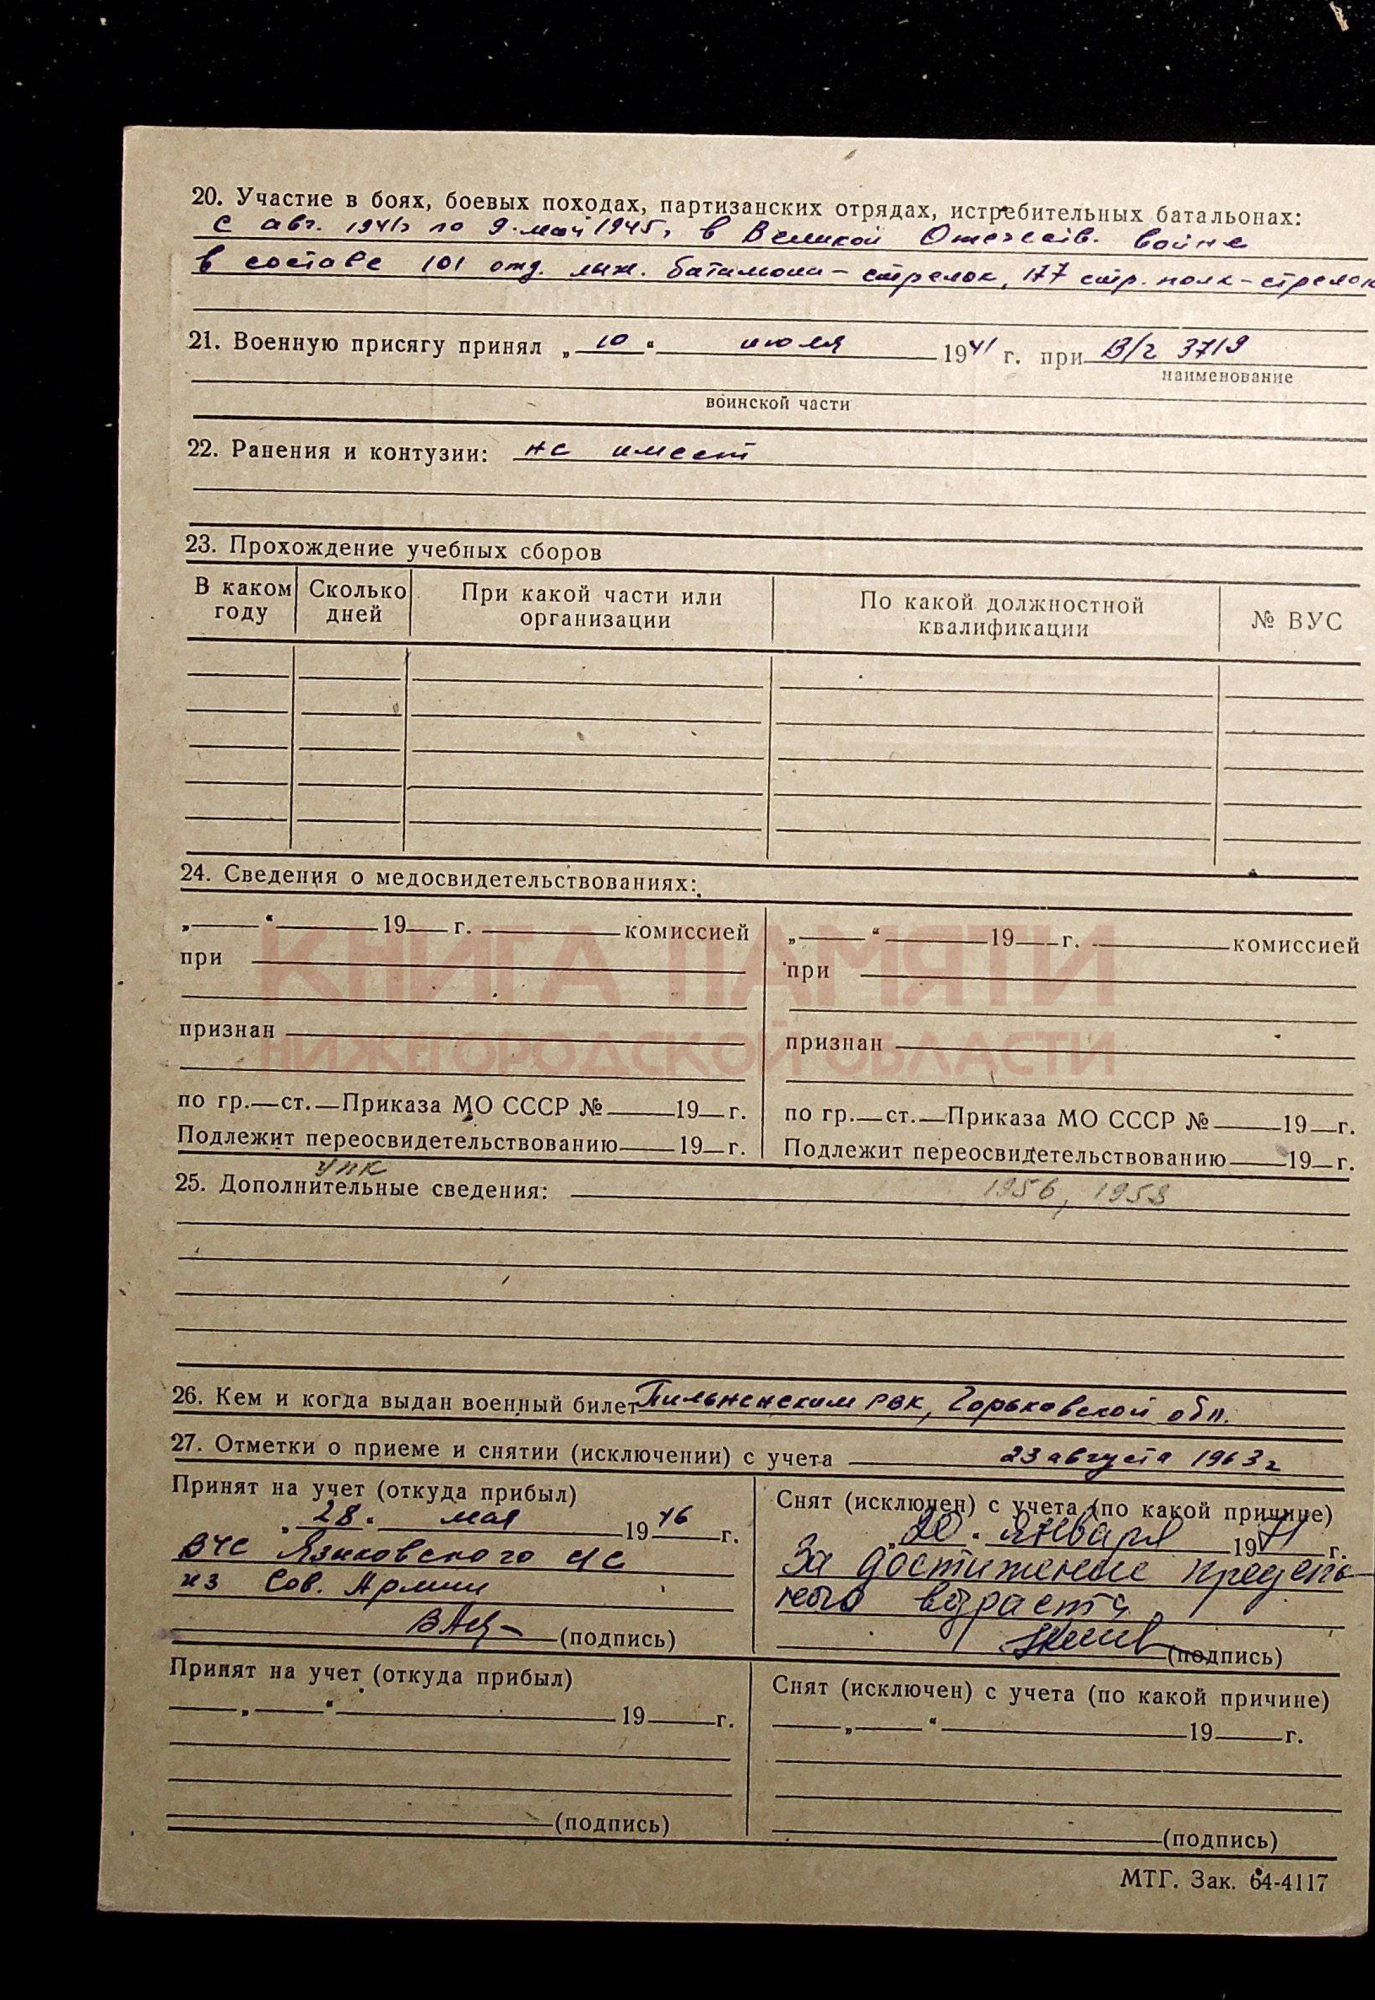 20. Участие в боях, боевых походах, партизанских отрядах, истребительных батальонах:
с авг. 1941г по 9 мая 1945г в Великой Отечеств. войне
в составе 101 отд. лыж. батальона - стрелок, 177 стр. полк - стрелок
21. Военную присягу принял „10“ июля 1941 г. при В/ч 3719
наименование
воинской части
22. Ранения и контузии: не имеет
23. Прохождение учебных сборов
В каком году Сколько дней При какой части или организации По какой должностной квалификации № ВУС
24. Сведения о медосвидетельствованиях:
„ “ 19 г. комиссией „ “ 19 г. комиссией
при при
КНИГА ПАМЯТИ
признан признан
НИЖЕГОРОДСКОЙ ОБЛАСТИ
по гр. ст. Приказа МО СССР № 19 г. по гр. ст. Приказа МО СССР № 19 г.
Подлежит переосвидетельствованию 19 г. Подлежит переосвидетельствованию 19 г.
УПК
25. Дополнительные сведения: 1956, 1958
26. Кем и когда выдан военный билет Пильненским РВК, Горьковской обл.
27. Отметки о приеме и снятии (исключении) с учета 23 августа 1963 г
Принят на учет (откуда прибыл)
„28“ мая 1946 г.
ВУС Языковского с/с
из Сов. Армии
(подпись)
Снят (исключен) с учета (по какой причине)
„20“ января 1971 г.
За достижение предель-
ного возраста
(подпись)
Принят на учет (откуда прибыл)
„ “ 19 г.
(подпись)
Снят (исключен) с учета (по какой причине)
„ “ 19 г.
(подпись)
МТГ. Зак. 64-4117